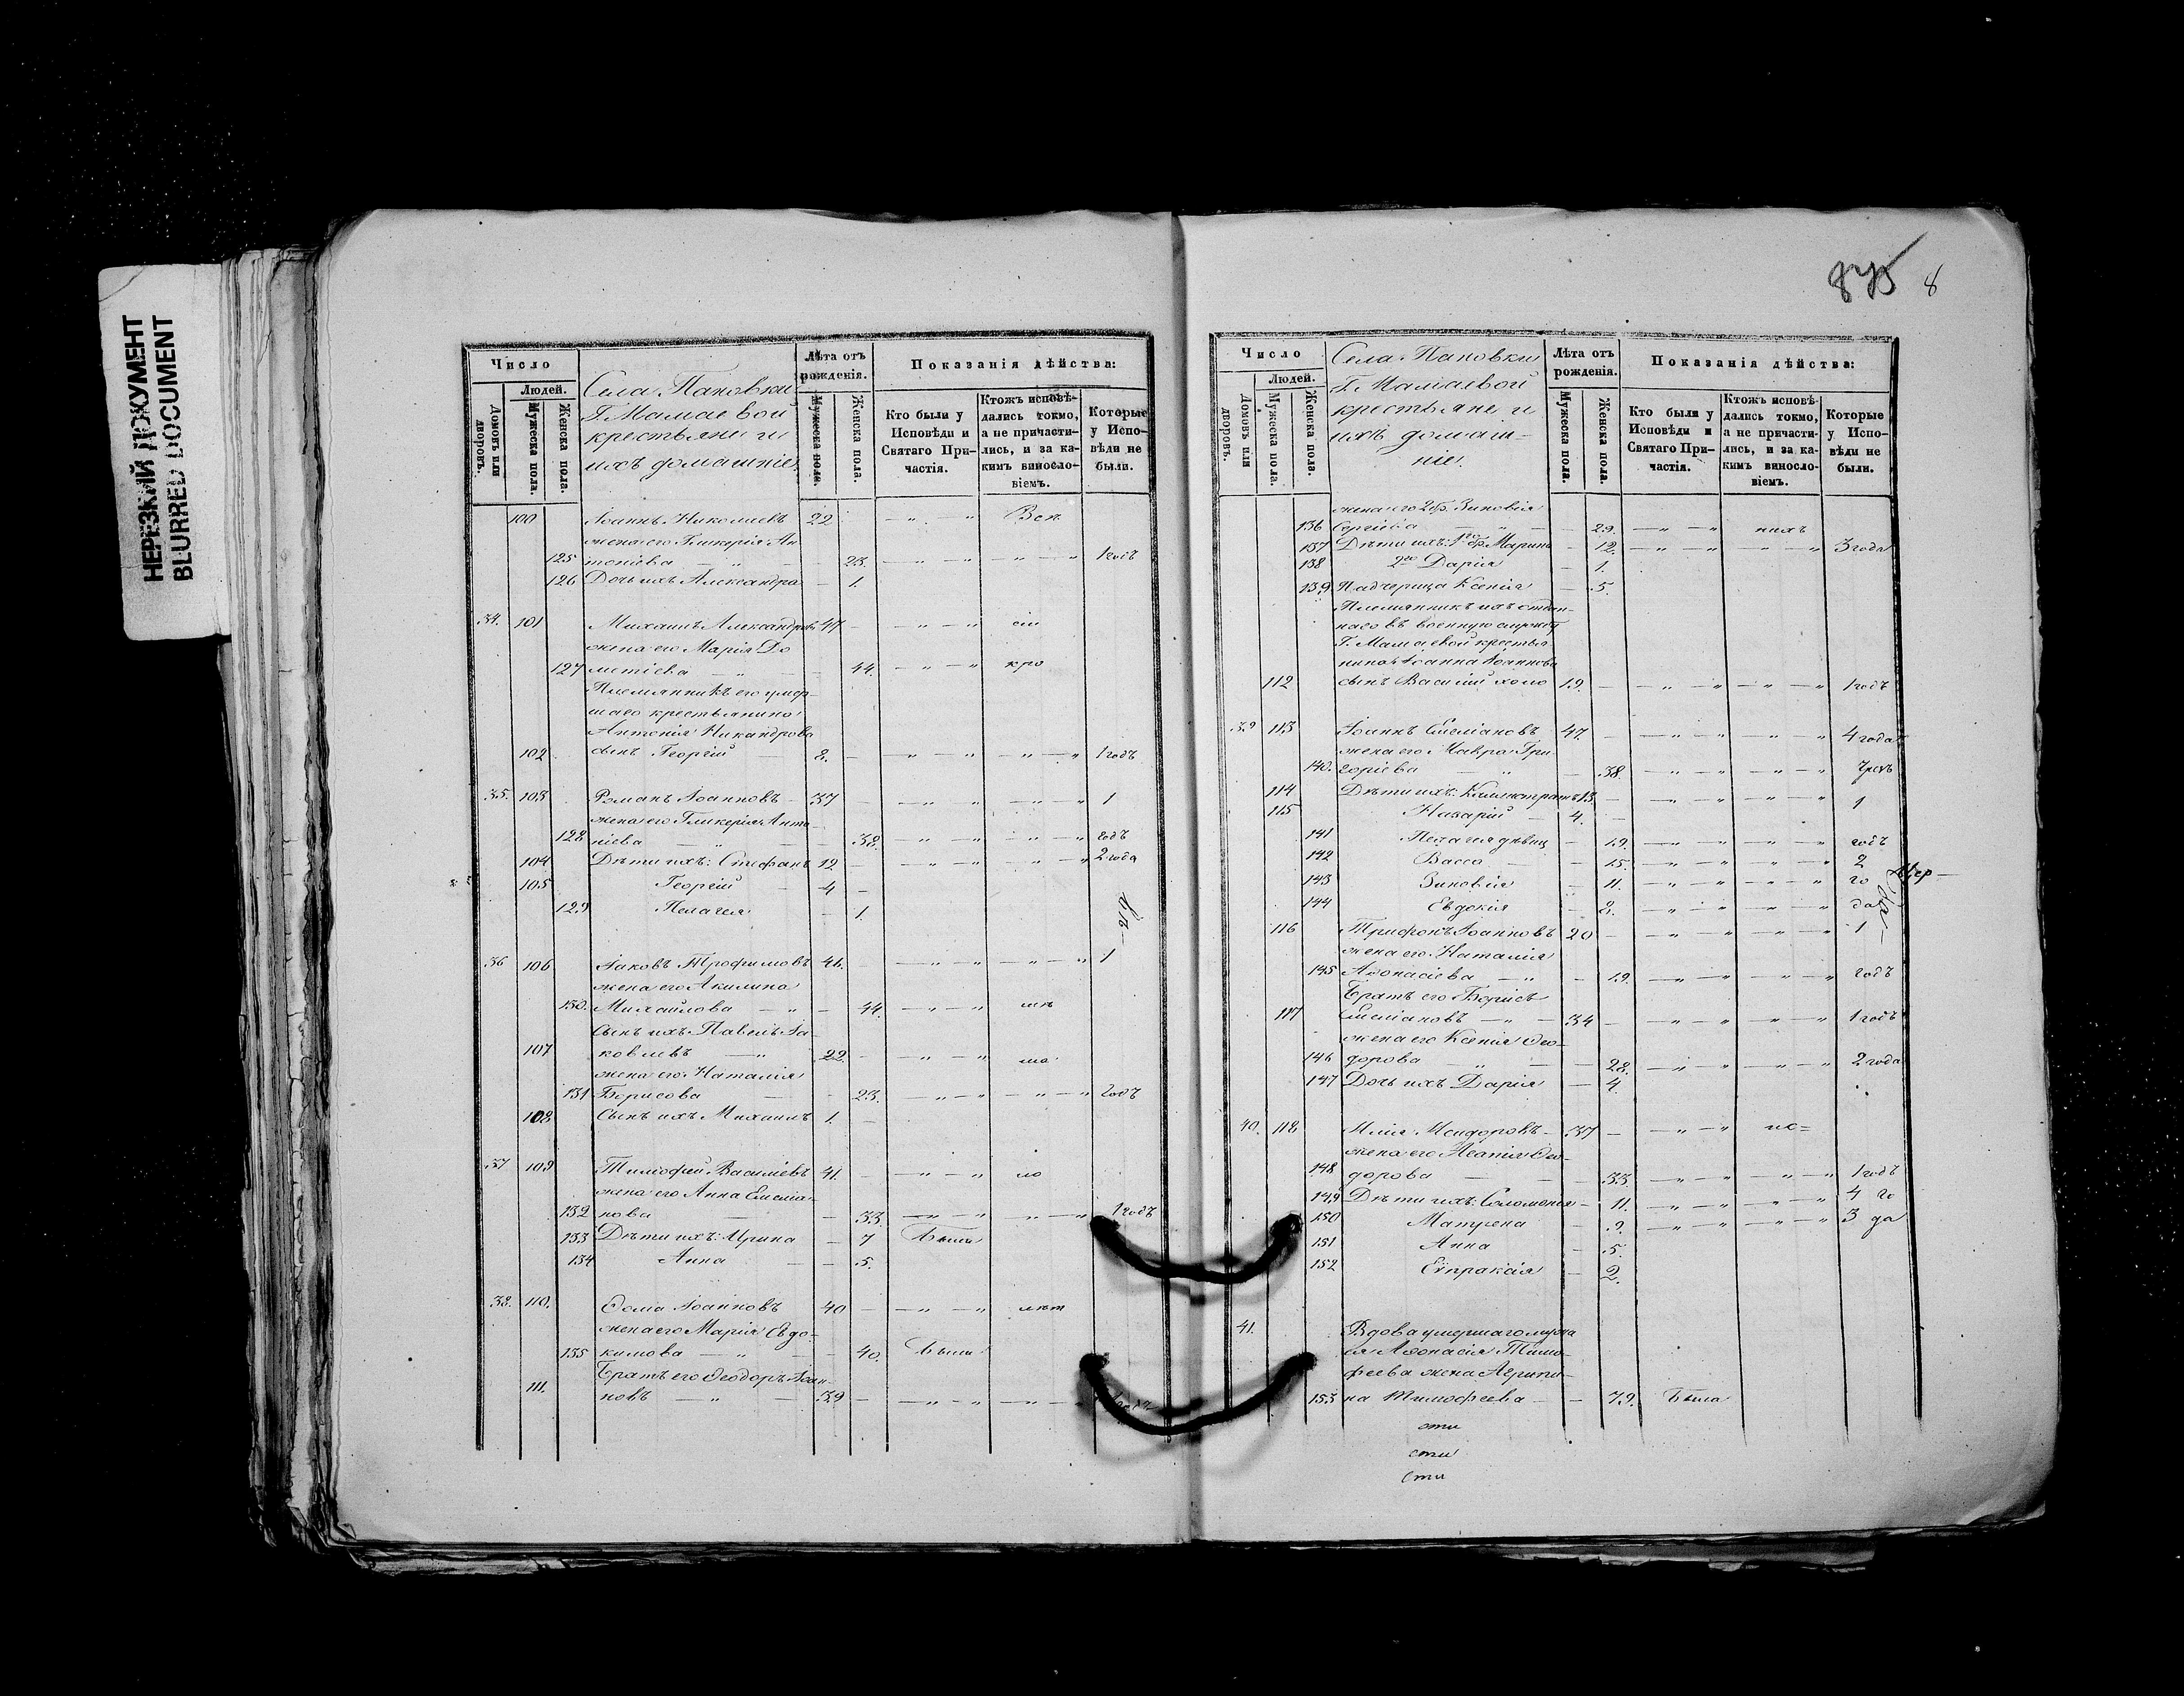 НЕРЕЗКИЙ ДОКУМЕНТ
BLURRED DOCUMENT
8
Число
Людей.
Домовъ или дворовъ.
Мужеска пола.
Женска пола.
Села Пановки
Г. Мамаевой
крестьяне и
ихъ домашніе.
Лѣта отъ рожденія.
Мужеска пола.
Женска пола.
Показанія дѣйства:
Кто были у Исповѣди и Святаго Причастія.
Ктожъ исповѣдались токмо, а не причастились, и за какимъ винословіемъ.
Которые у Исповѣди не были.
100 Іоаннъ Николаевъ 22 — „ — „ Всѣ
жена его Гликерія Ан
125 тоніева — „ — 23. — „ — „ — „ — „ 1 годъ
126 Дочь ихъ Александра — 1.
34. 101 Михаилъ Александровъ 47 — — „ — „ сіи
жена его Марія До
127 метіева — „ — 44. — „ — „ кро
Племянникъ его умер-
шаго крестьянина
Антонія Никандрова
102 сынъ Георгій — 8. — — „ — „ — „ — „ 1 годъ
35. 103 Романъ Іоанновъ — 37 — — „ — „ — „ — „ 1
жена его Гликерія Анто-
128 ніева — „ 38. — „ — „ — „ — „ годъ
104 Дѣти ихъ: Стефанъ 12. — — „ — „ — „ — „ 2 года
105 Георгій — 4 —
129 Пелагея — 1.
36 106 Іаковъ Трофимовъ 46. — — „ — „ — „ — „ 1
жена его Акилина
130. Михайлова — „ — 44. — „ — „
Сынъ ихъ Павелъ Іа-
107 ковлевъ — „ 22. — — „ — „
жена его Наталія
131 Борисова — 23. — „ — „ — „ — „ годъ
108 Сынъ ихъ Михаилъ 1. —
37 109 Тимофей Васильевъ 41. — — „ — „ ло
жена его Анна Емелиа-
132 нова — — 33. — „ — „ — „ — „ 1 годъ
133 Дѣти ихъ: Ирина — 7 Были
134 Анна — — 5.
38. 110. Ѳома Іоанновъ 40 — — „ — „ лѣт
жена его Марія Евдо-
135 кимова — „ — 40. Были
Братъ его Ѳеодоръ Іоан-
111. новъ — „ — 39 — — „ — „ — „ — 1 годъ
Число
Людей.
Домовъ или дворовъ.
Мужеска пола.
Женска пола.
Села Пановки
Г. Мамаевой
крестьяне и
ихъ домаш-
ніе.
Лѣта отъ рожденія.
Мужеска пола.
Женска пола.
Показанія дѣйства:
Кто были у Исповѣди и Святаго Причастія.
Ктожъ исповѣдались токмо, а не причастились, и за какимъ винословіемъ.
Которые у Исповѣди не были.
жена его 2 бр. Зиновія
136 Сергіева — „ — 29. — „ — „ нихъ
137 Дѣти ихъ: 1го бр. Марина — 12. — „ — „ — „ — „ 3 года
138 2го Дарія — 1.
139 Падчерица Ксенія — 5.
Племянникъ ихъ отдан-
наго въ военную службу
Г. Мамаевой крестья
нина Іоанна Іоаннова
112 сынъ Василій холо 19. — — „ — „ — „ — „ 1 годъ
39 113 Іоаннъ Емеліановъ 47. — — „ — „ — „ — „ 4 года
жена его Мавра Гри
140. горіева — „ — 38. — „ — „ — „ — „
114 Дѣти ихъ: Каллистратъ 13 — — „ — „ — „ — „ 1
115 Назарій — 4. —
141 Пелагея дѣвиц — 19. — „ — „ — „ — „ годъ
142 Васса — — 15. — „ — „ — „ — „ 2
143 Зиновія — 11. — „ — „ — „ — „ го
144 Евдокія — 8. — „ — „ — „ — „ да
116 Трифонъ Іоанновъ 20 — — „ — „ — „ — „ 1
жена его Наталія
145 Аѳонасіева — „ — 19. — „ — „ — „ — „ годъ
Братъ его Борисъ
117 Емеліановъ — „ — 34 — — „ — „ — „ — „ 1 годъ
жена его Ксенія Ѳео-
146 дорова — „ — 28. — „ — „ — „ — „ 2 года
147 Дочь ихъ Дарія — 4.
40. 118 Илія Исидоровъ — 37 — — „ — „ ис=
жена его Ѳео-
148 дорова — — 33. — „ — „ — „ — „ 1 годъ
149 Дѣти ихъ: Соломонея — 11. — „ — „ — „ — „ 4 го
150 Матрена — 9. — „ — „ — „ — „ 3 да
151 Анна — 5.
152 Евпраксія — 2.
41. Вдова умершаго мужа
ея Аѳонасія Тимо-
феева жена Агрипи-
153 на Тимофеева — — 79. Была
сти
сти
сти